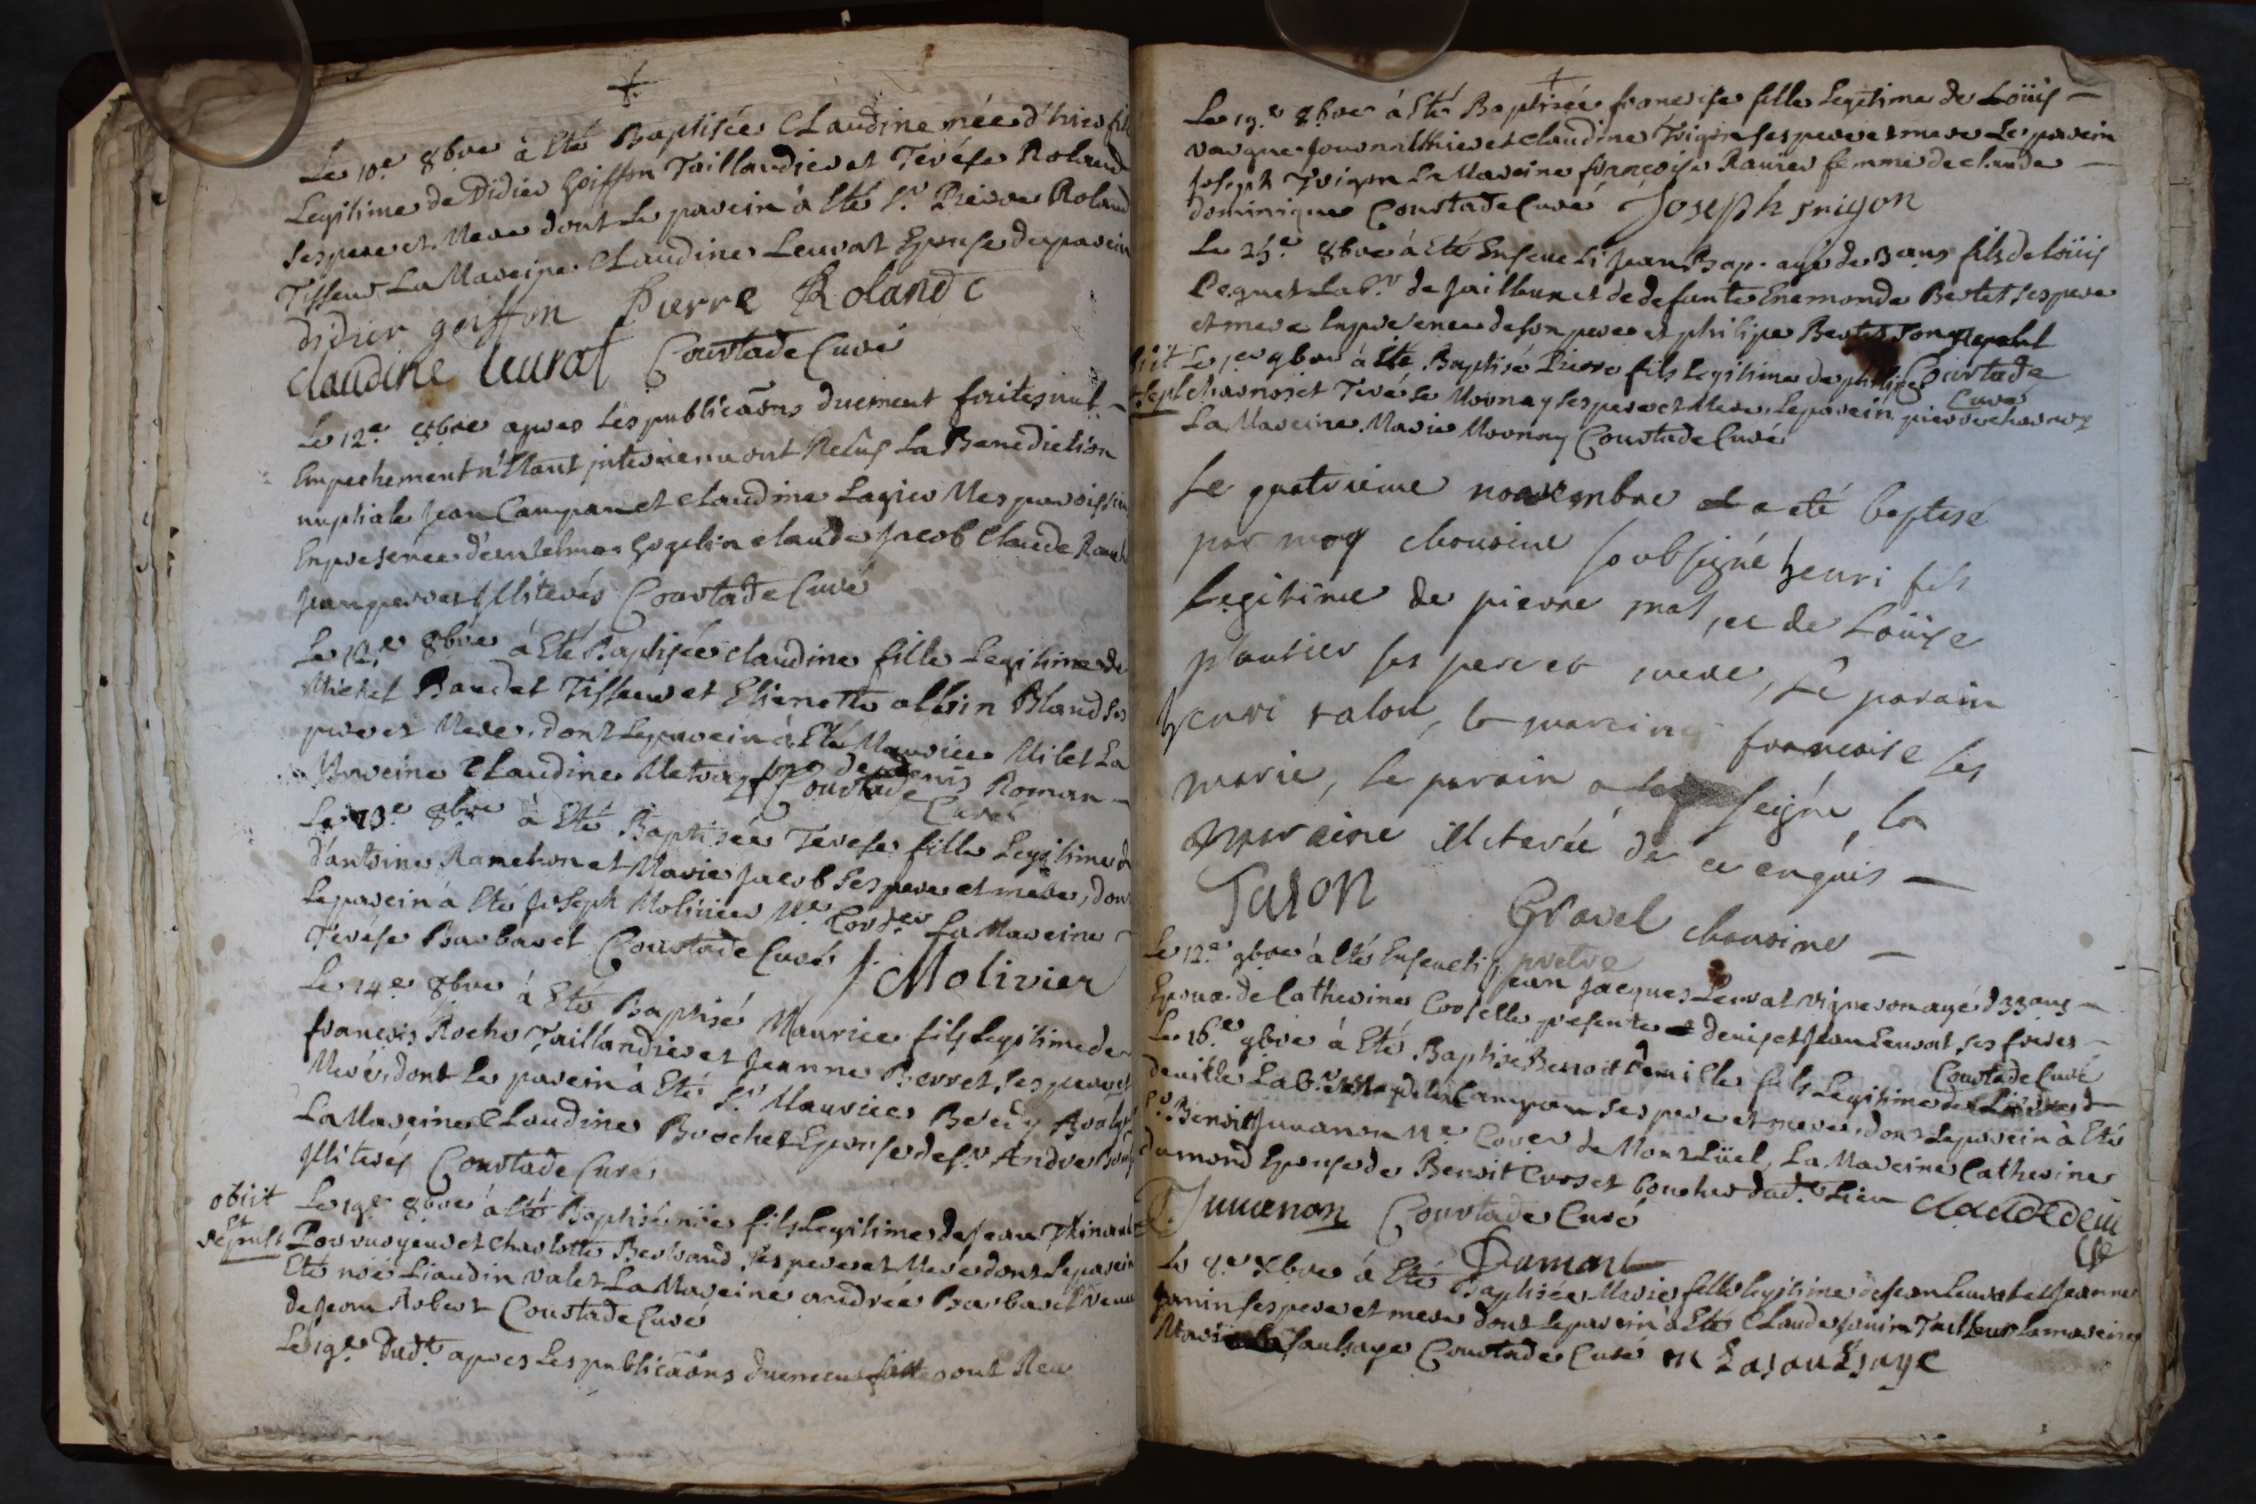 Le 10.e 8bre à Eté Baptisée Claudine née d'hier fille
Legitime de Didier Goiffon Taillandier et Terése Roland
ses pere et Mere dont Le parein à Eté Sr. Pierre Roland
Tisseur La Mareine Claudine Leurat Epouse du parein
didier goiffon Pierre Roland
Claudine leurat Courtade Curé
Le 12.e 8bre apres Les publicaons duement faites nul
Empechement n'Etant intervenu ont Reçus La Benediction
nuptiale Jean Campan et Claudine Lagier Mes paroissiens
En presence d'antelme Gogelin claude Jacob Claude
Jean illiterés Courtade Curé
Le 12.e 8bre à Eté Baptisée claudine fille Legitime de
Michel Baudet Tisseur et Etienette albin Bland ses
pere et Mere, dont Le parein à Eté Maurice Milet La
Mareine Claudine de denis Roman
Courtade Curé
Le 13.e 8bre à Eté Baptisée Terese fille Legitime
d'antoine Ramelion et Marie Jacob ses pere et mere, dont
Le parein à Eté Joseph Molivier Me. Cord.er La Mareine
Terése Barbaret Courtade Curé
J Molivier
Le 14.e 8bre à Eté Baptisé Maurice fils Legitime de
françois Roche Taillandier et Jeanne Perret, ses pere et
Mere, dont Le parein à Eté Sr. Maurice
La Mareine Claudine Brochet Epouse de sr. Andre
illiterés Courtade Curé
obiit
Et
sepult
Le 19.e 8bre à Eté Baptisé fils Legitime de Jean
Pourvoyeur et Charlotte Bertrand ses pere et Mere dont Le parein
Eté Liaudin valet La Mareine andrée Barbaret
de Jean Robert Courtade Curé
Le 19.e dudt. apres Les publicaons duement ont Recu
Le 19.e 8bre à Eté Baptisée francoise fille Legitime de Loüis
vargue Journallhier et claudine Frigon ses pere et mere Le parein
Joseph Frigon La Mareine françoise Ravier femme de claude
dominique Courtade Curé Joseph frigon
Le 25.e 8bre à Eté Enseveli Jean Bap. agé de 3 ans fils de Loüis
Peguet Lab.r de Jailleux et de defunte Enemonde Bertet ses pere
et mere En presence de son pere et philipe Bertet son
Courtade
Curé
obiit
et sepl
Le 1.er 9bre à Eté Baptisé Pierre fils Legitime de philipe
Charnoz et Terése Mornay ses pere et Mere, Le parein pierre charnoz
La Mareine Marie Mornay Courtade Curé
Le quatrieme novembre a eté baptisé
par moy chanoine soubsigné henri fils
legitime de pierre mas, et de Loüise
plantier ses pere et mere, le parain
henri talon, la maraine francoise les
marie, le parain a seigné, la
maraine illiterée de ce enquis
Talon
Gravel chanoine
pretre
Le 12.e 9bre à Eté Enseveli Jean Jacques Leurat vigneron agé d 33 ans
Epoux de Catherine Croselle presents denis et Jean Leurat ses freres
Courtade Curé
Le 16.e 9bre à Eté Baptisé Benoit fils Legitime de
Lab.r Campan ses pere et mere, dont Le parein à Eté
Sr. Benoit Juvanon Me. de Montlüel, La Mareine Catherine
dumond Epouse de Benoit Croset boucher dud. Lieu
Juuenon Courtade Curé
Dumont
Le 9.e Xbre à Eté Baptisée Marie fille Legitime de Jean Leurat et Jeanne
Janin ses pere et mere dont Le parein à Eté Claude Janin Tailleur La mareine
Marie Lasaulsaye Courtade Curé m Lasausaye